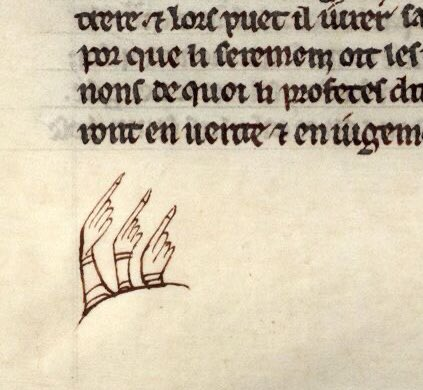 tiere ⁊ lors puet il iurer sa
por que li seremenz ort les
nons de quoi li profetes dit
iront en uerite ⁊ en iugem